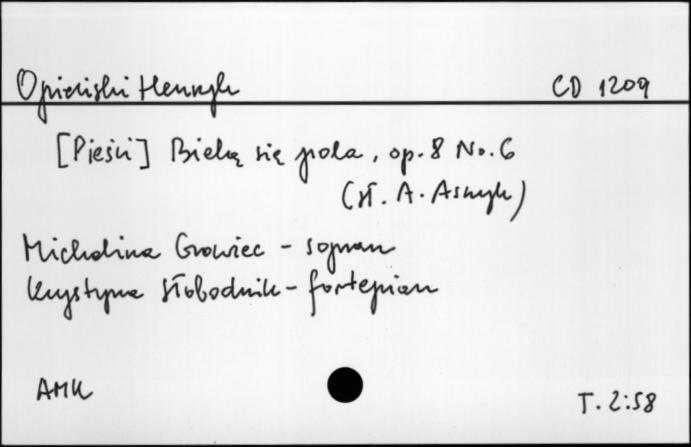 Opieński Henryk CD 1209
[Pieśń] Bielą się pola, op. 8 No. 6
(sł. A. Asnyk)
Michalina Growiec - sopran
Krystyna Słobodnik - fortepian
AMK
T. 2:58